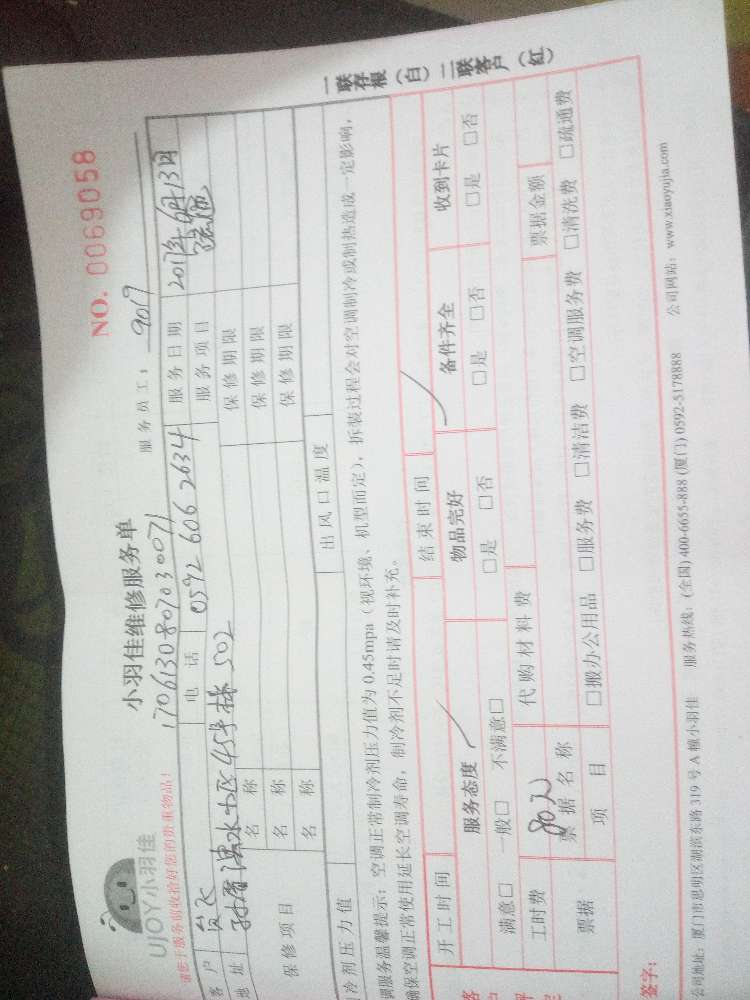 NO. 0069058
UJOY小羽佳
小羽佳维修服务单
170613080703007
服务员工: 9019
请您于服务前收拾好您的贵重物品!
客户 电话 0592 606 2634 服务日期 2017年6月13日
地址 45号楼 502 服务项目
保修项目 名称 保修期限
名称 保修期限
名称 保修期限
冷剂压力值 出风口温度
调服务温馨提示: 空调正常制冷剂压力值为 0.45mpa (视环境、机型而定), 拆装过程会对空调制冷或制热造成一定影响,
确保空调正常使用延长空调寿命, 制冷剂不足时请及时补充。
开工时间 结束时间
服务态度 物品完好 备件齐全 收到卡片
满意□ 一般□ 不满意□ □是 □否 □是 □否 □是 □否
工时费 80元 代购材料费
票据 票据名称 票据金额
项目 □搬办公用品 □服务费 □清洁费 □空调服务费 □清洗费 □疏通费
签字:
公司地址: 厦门市思明区湖滨东路 319 号 A 幢小羽佳 服务热线: (全国) 400-6655-888 (厦门) 0592-5178888 公司网站: www.xiaoyujia.com
一联存根(白) 二联客户(红)